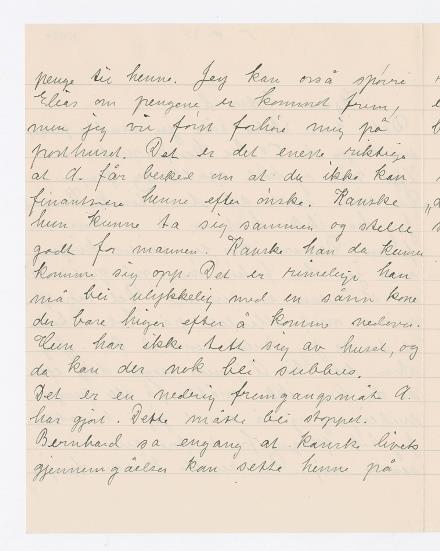 penge til henne. Jeg kan også spørre
Elias om pengene er kommet frem,
men jeg vil først forhøre mig på
posthuset. Det er det eneste riktige
at A. får beskjed om at du ikke kan
finansiere henne efter ønske. Kanske
hun kunne ta sig sammen og stelle
godt for mannen. Kanske han da kunne
komme sig opp. Det er rimelig han
må bli ulykkelig med en sånn kone
der bare higer efter å komme nedover.
Hun har ikke tatt sig av huset, og
da kan der nok bli subbus.
Det er en nedrig fremgangsmåte A.
har gjort. Dette måtte bli stoppet.
Bernhard sa engang at kanske livets
gjennemgåelser kan sette henne på